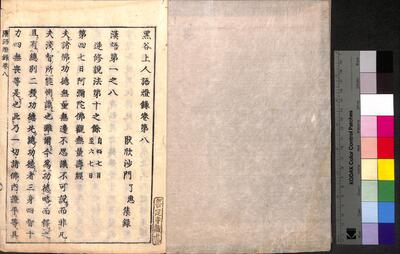 黒谷上人語燈録卷第八
厭欣沙門了惠集録
漢語第一之八
逆修説法第十之餘 自四七日
至六七日
第四七日阿彌陀佛觀無量壽經
夫諸佛功德無量無邊不思議不可説而非凡
夫淺智所能測識之雖爾今爲功德略而解之
且有總別二種功德先總功德者三身四智十
力四無畏等是之此乃一切諸佛内證平等具
漢語燈録卷八
KODAK Color Control Patches